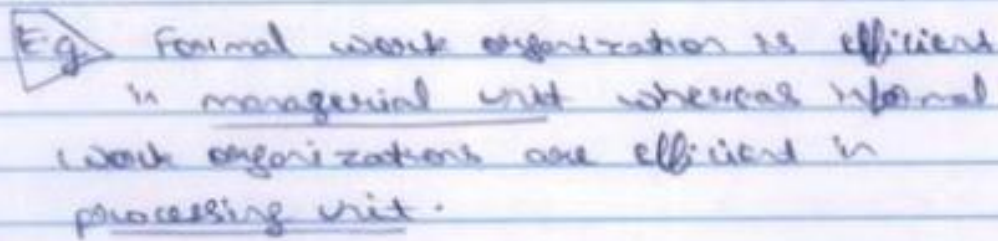 E.g. Formal work organization is efficient
in managerial unit whereas informal
work organizations are efficient in
processing unit.